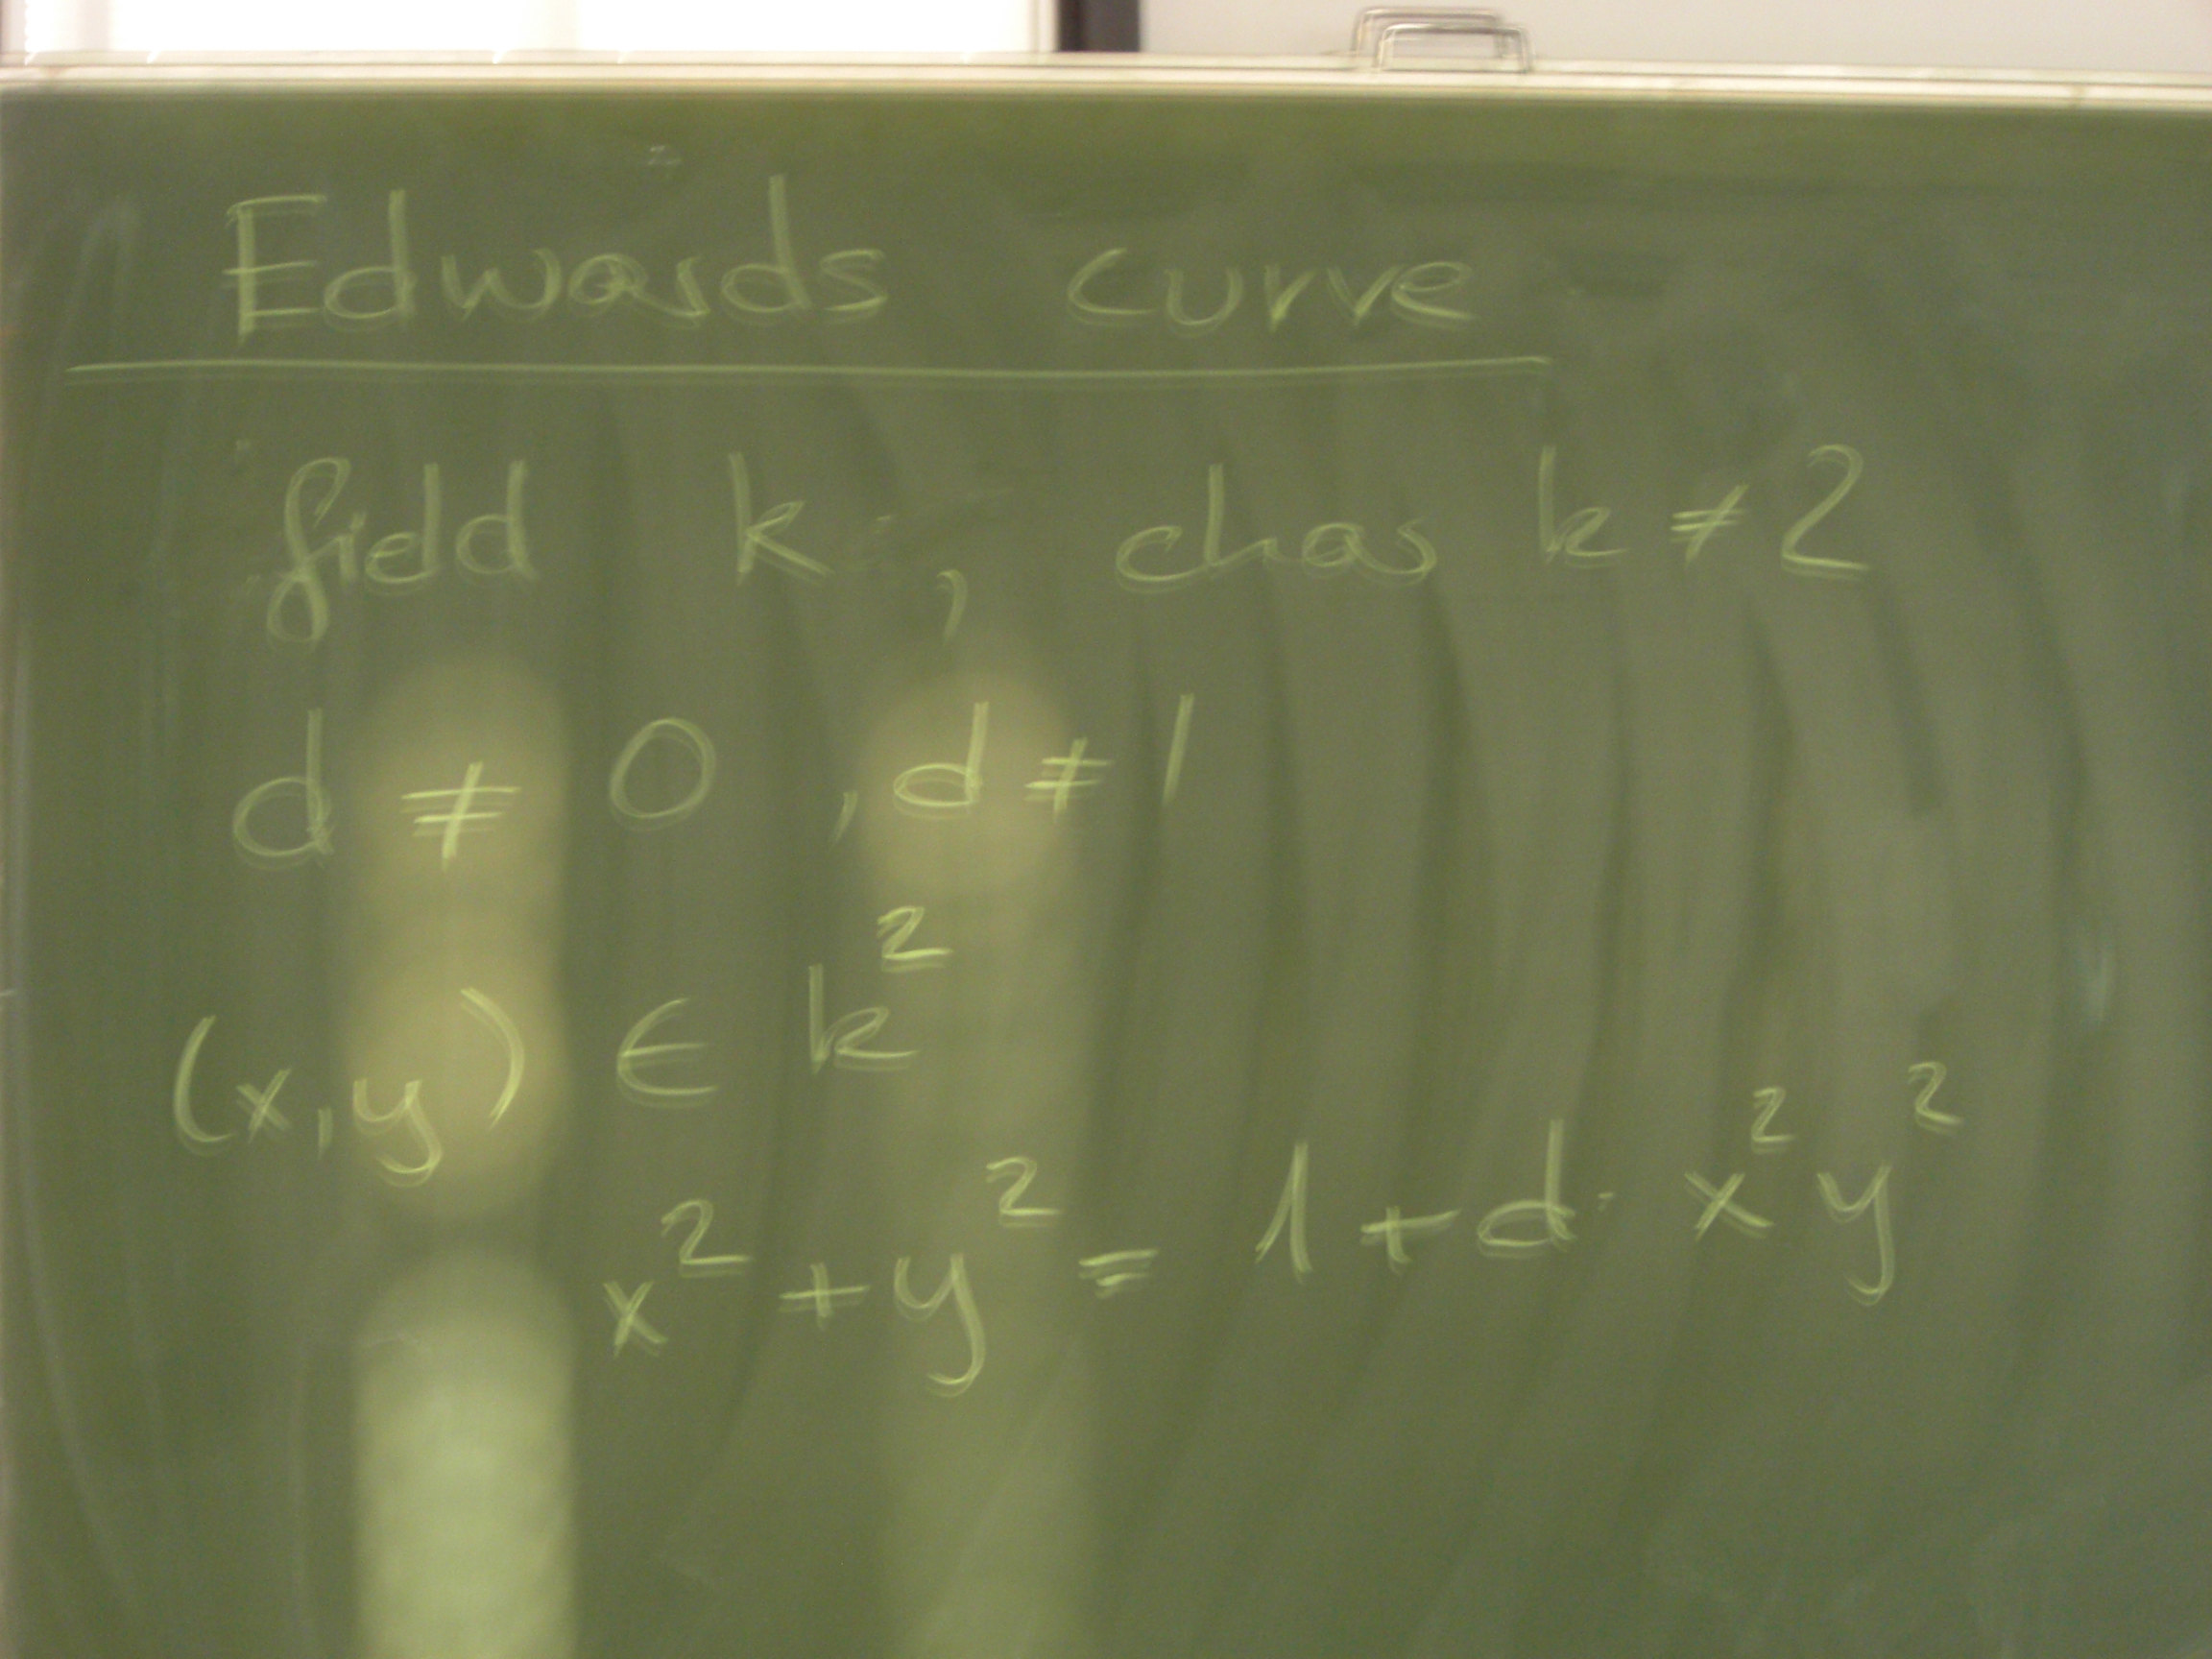 Edwards curve
field k, char k ≠ 2
d ≠ 0, d ≠ 1
(x,y) ∈ k²
x² + y² = 1 + d · x² y²